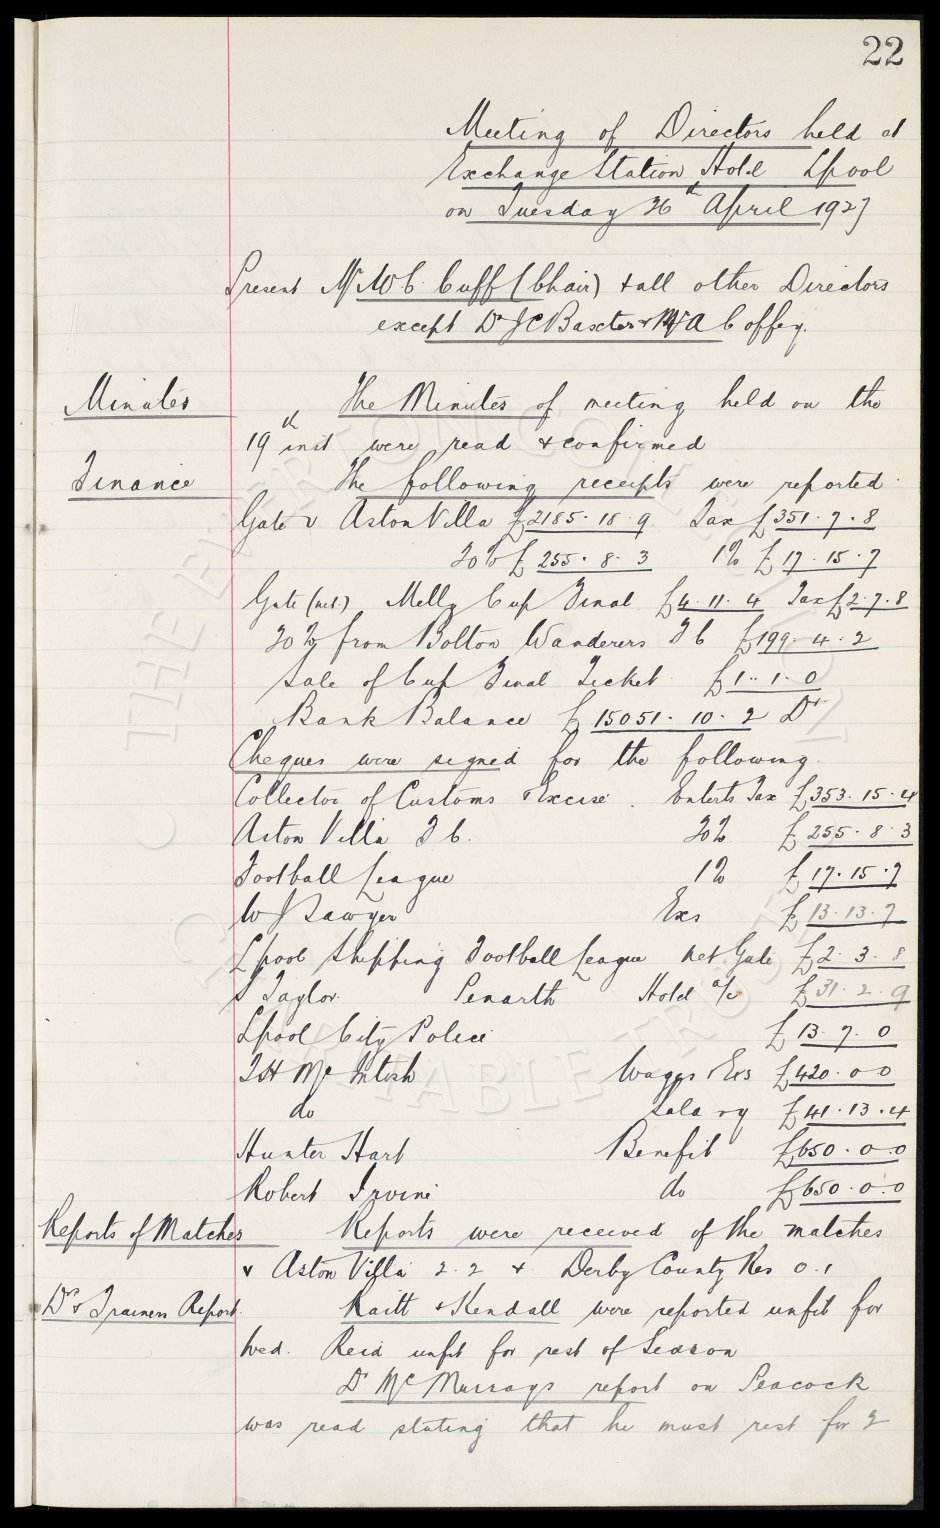 22
Meeting of Directors held at
Exchange Station Hotel Lpool
on Tuesday 26th April 1927
Present Mr W C Cuff (Chair) & all other Directors
except Dr J C Baxter & Mr A Coffey.
Minutes The Minutes of meeting held on the
19th inst were read & confirmed
Finance The following receipts were reported
Gate v Aston Villa £2185.18.9 Tax £351.7.8
20% £255.8.3 1% £17.15.7
Gate (net.) Melly Cup Final £4.11.4 Tax £2.7.8
20% from Bolton Wanderers F C £199.4.2
Sale of Cup Final Ticket £1.1.0
Bank Balance £15051.10.2 Dr.
Cheques were signed for the following.
Collector of Customs & Excise. Enterts Tax £353.15.4
Aston Villa F C. 20% £255.8.3
Football League 1% £17.15.7
W J Sawyer Exs £13.13.7
Lpool Shipping Football League net Gate £2.3.8
S Taylor Penarth Hotel a/c £31.2.9
Lpool City Police £13.7.0
T H Mc Intosh Wages & Exs £420.0.0
do Salary £41.13.4
Hunter Hart Benefit £650.0.0
Robert Irvine do £650.0.0
Reports of Matches Reports were received of the matches
v Aston Villa 2.2 & Derby County Res 0.1
Dr & Trainers Report. Raitt & Kendall were reported unfit for
Wed. Reid unfit for rest of Season
Dr Mc Murrays report on Peacock
was read stating that he must rest for 2
© THE EVERTON COLLECTION CHARITABLE TRUST